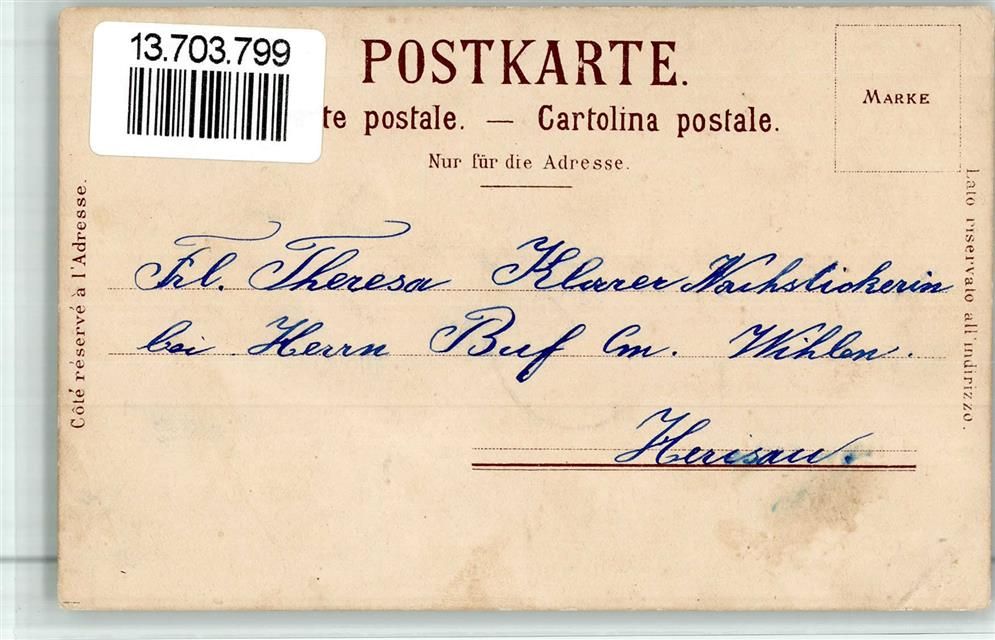 13.703.799
POSTKARTE.
te postale. — Cartolina postale.
Nur für die Adresse.
MARKE
Côté réservé à l'Adresse.
Lato riservato all'indirizzo.
Frl. Theresa Klarer Nachstickerin
bei Herrn Buf Cm. Wihlen.
Herisau.